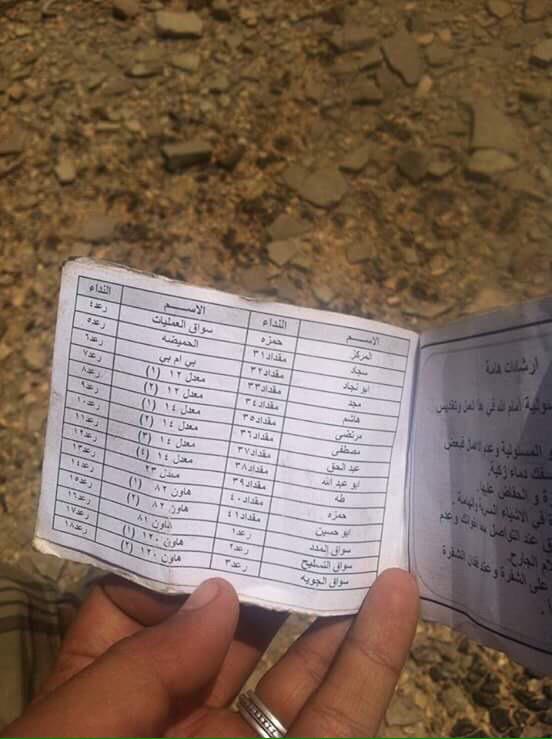 الاســـم النداء الاســـم النداء
المركز حمزه سواق العمليات رعد٤
سجاد مقداد٣١ الحميضه رعد٥
ابو نجاد مقداد٣٢ بي ام بي رعد٦
مجد مقداد٣٣ معدل ١٢ (١) رعد٧
هاشم مقداد٣٤ معدل ١٢ (٢) رعد٨
مرتضى مقداد٣٥ معدل ١٤ (١) رعد٩
مصطفى مقداد٣٦ معدل ١٤ (٢) رعد١٠
عبد الحق مقداد٣٧ معدل ١٤ (٣) رعد١١
ابو عبد الله مقداد٣٨ معدل ١٤ (٤) رعد١٢
طه مقداد٣٩ معدل ٢٣ رعد١٣
حمزه مقداد٤٠ هاون ٨٢ (١) رعد١٤
ابو حسين مقداد٤١ هاون ٨٢ (٢) رعد١٥
سواق المدد رعد١ هاون ٨١ رعد١٦
سواق التسليح رعد٢ هاون ١٢٠ (١) رعد١٧
سواق الجويه رعد٣ هاون ١٢٠ (٢) رعد١٨
ارشادات هامة
أمام الله في هذا العمل وتقديس
المسئولية وعدم الاهمال فبعض
سفك دماء زكية.
و الحفاظ عليها.
في الاشياء السرية والهامة.
عند التواصل مع اخوانك وعدم
الجارح.
على الشفرة وعند فقدان الشفرة